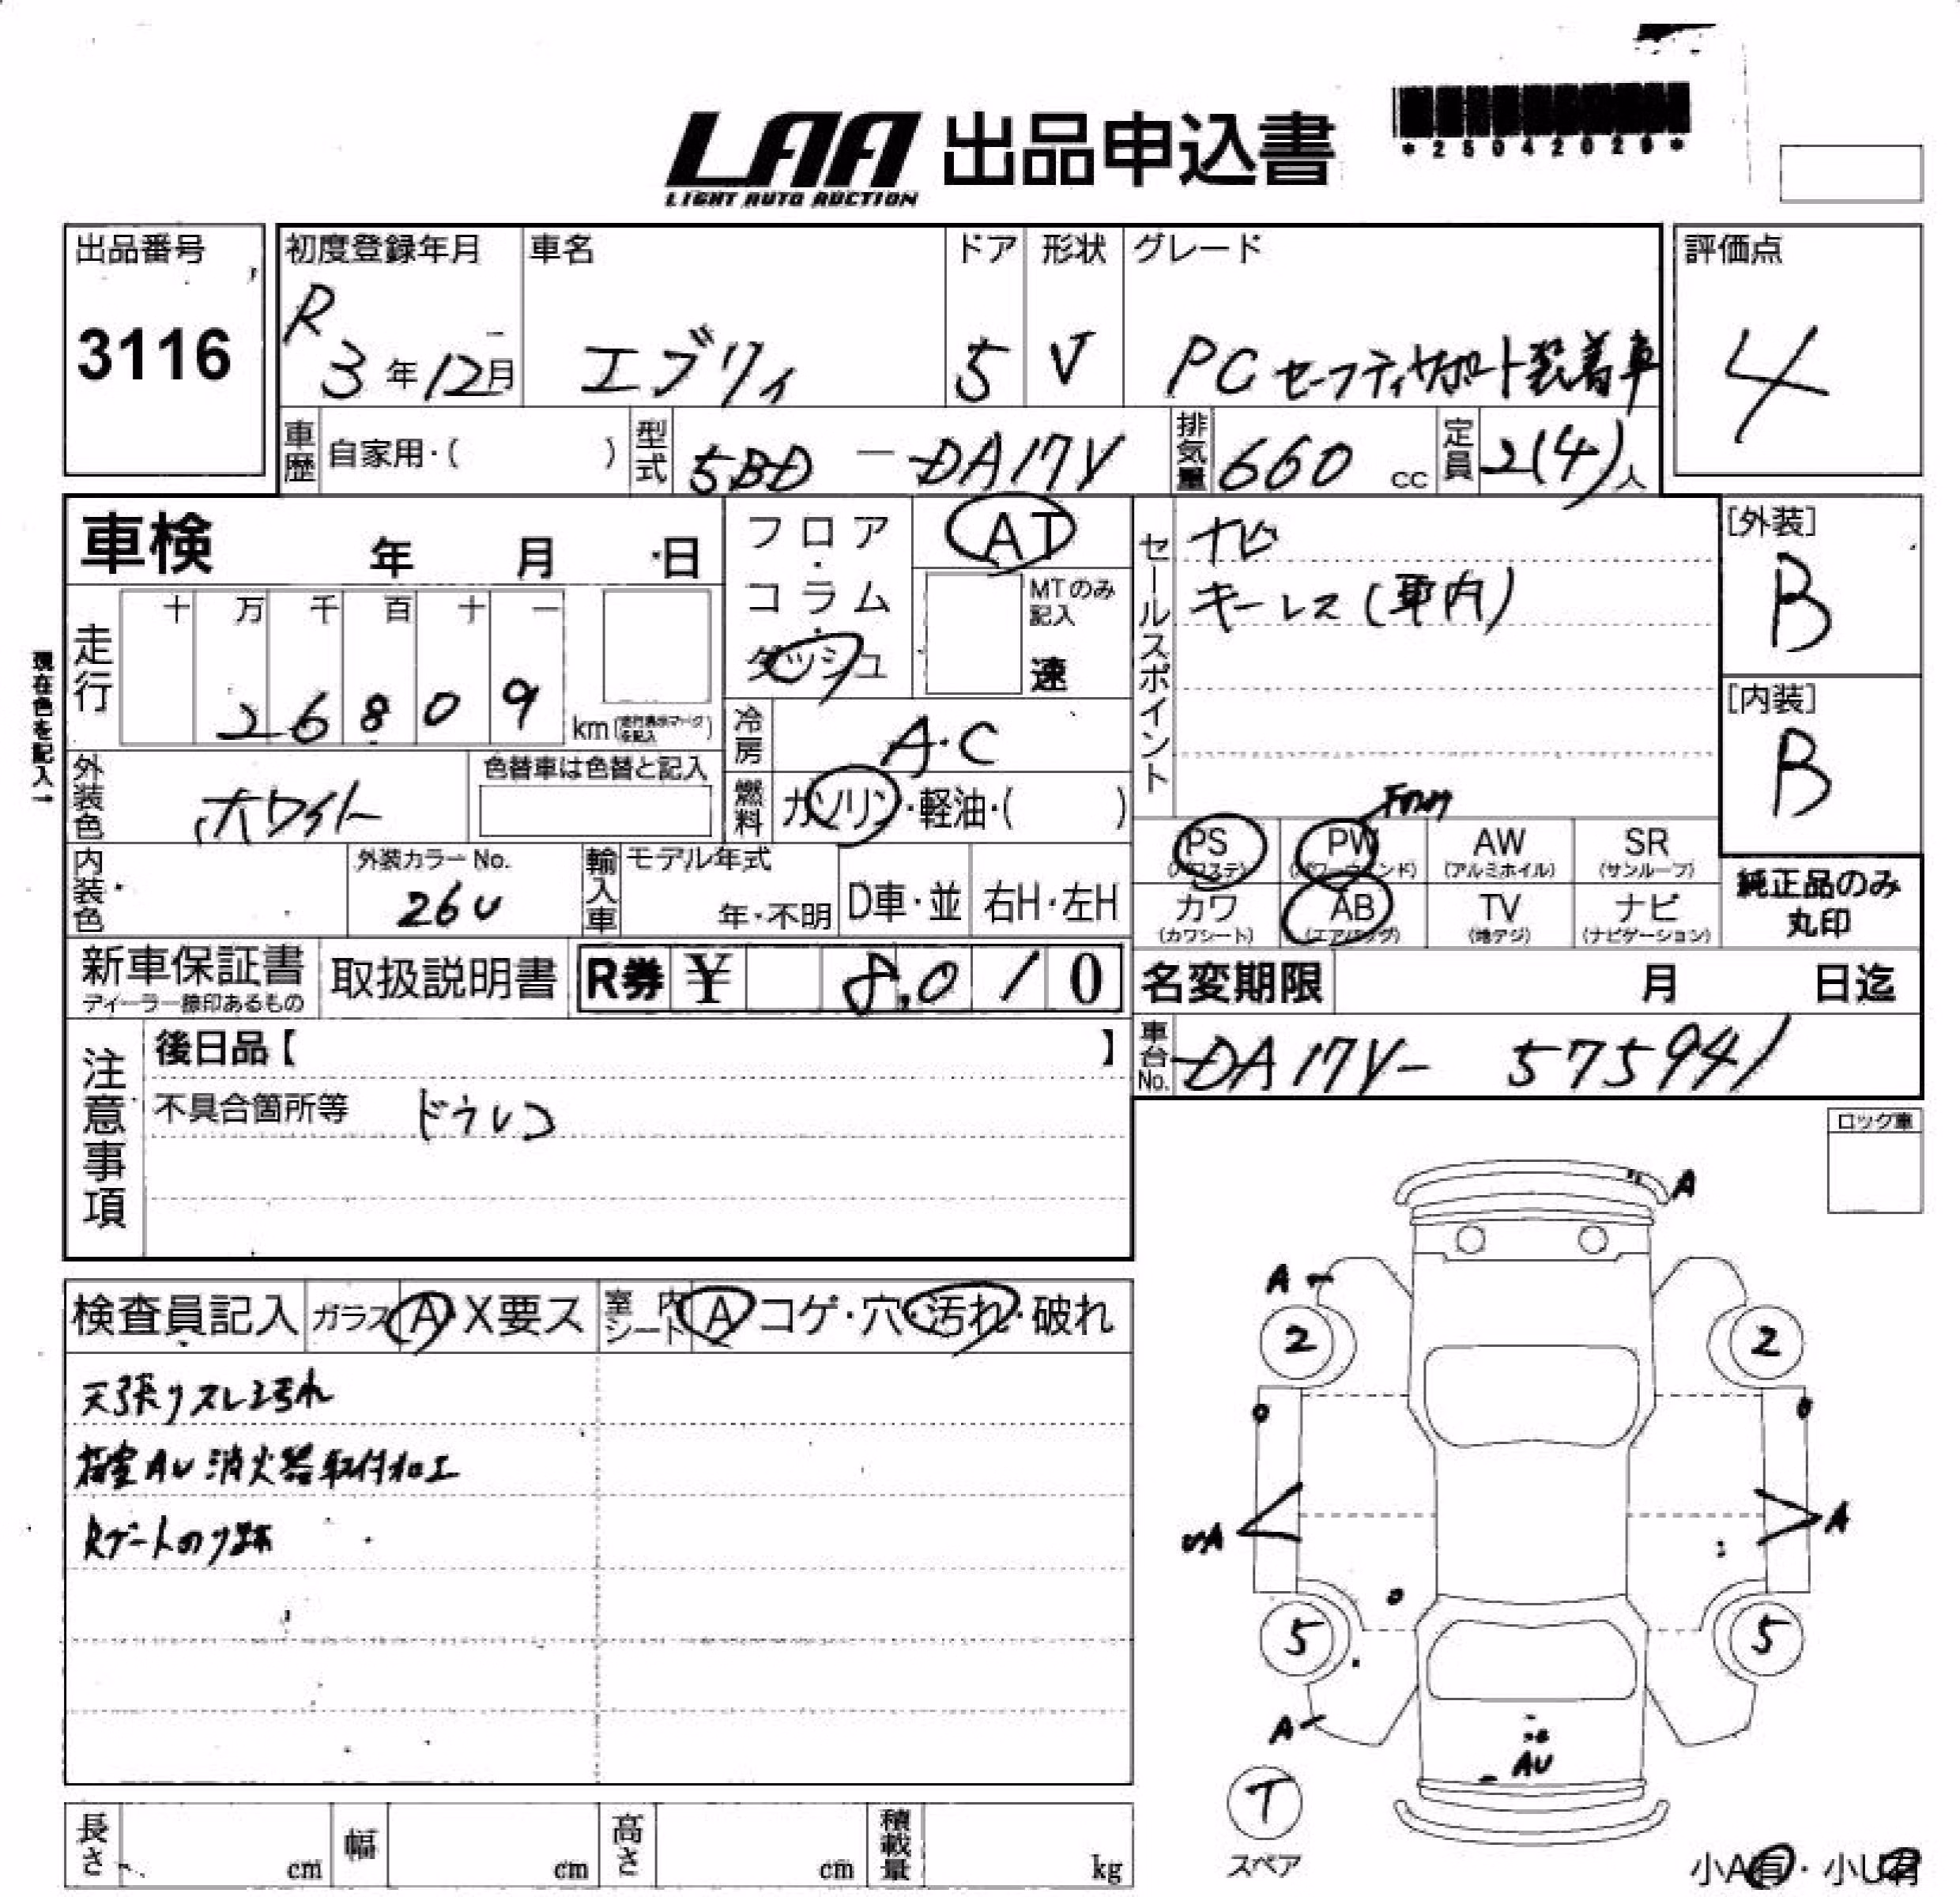 LAA 出品申込書
LIGHT AUTO AUCTION
*25042029*
出品番号
3116
初度登録年月
R
3年12月
車名
エブリィ
ドア
5
形状
V
グレード
PC セーフティサポート装着車
評価点
4
車歴 自家用・( )
型式 5BD - DA17V
排気量 660 cc
定員 2(4)人
車検 年 月 日
フロア・コラム・ダッシュ
AT
MTのみ記入
速
現在色を記入→
走行
十 万 千 百 十 一
2 6 8 0 9
km(走行表示マークを記入)
冷房 A・C
燃料 ガソリン・軽油・( )
外装色 ホワイト
色替車は色替と記入
内装色
外装カラーNo.
26U
輸入車
モデル年式
年・不明
D車・並
右H・左H
セールスポイント
ナビ
キーレス(車内)
PS
(パワステ)
PW
(パワーウィンド)
AW
(アルミホイル)
SR
(サンルーフ)
カワ
(カワシート)
AB
(エアバッグ)
TV
(地デジ)
ナビ
(ナビゲーション)
[外装]
B
[内装]
B
純正品のみ
丸印
新車保証書
ディーラー捺印あるもの
取扱説明書
R券 ¥ 8,010
名変期限 月 日迄
車台No. DA17V- 575941
注意事項
後日品【 】
不具合箇所等 ドラレコ
ロック車
検査員記入
ガラス A・X要ス
室内シート A コゲ・穴・汚れ・破れ
天張りスレ汚れ
荷室AU 消火器取付加工
Rゲートのり跡
A
A
2
2
UA
A
5
5
A
AU
T
スペア
小A有・小U有
長さ cm
幅 cm
高さ cm
積載量 kg